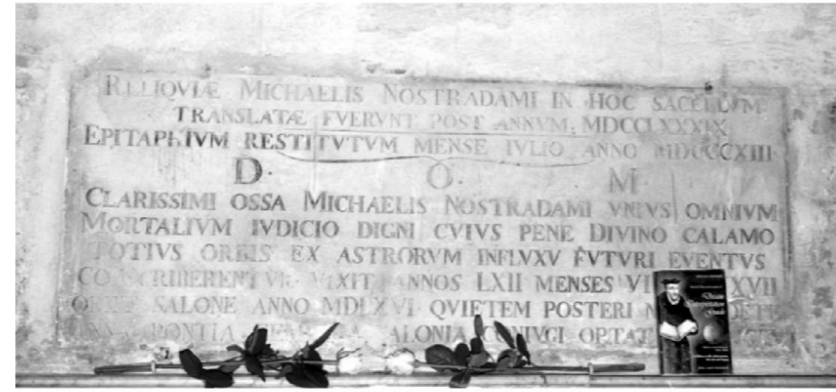 RELIQVIÆ MICHAELIS NOSTRADAMI IN HOC SACELLVM
TRANSLATÆ FVERVNT POST ANNVM MDCCLXXXIX
EPITAPHIVM RESTITVTVM MENSE IVLIO ANNO MDCCCXIII
D. O. M.
CLARISSIMI OSSA MICHAELIS NOSTRADAMI VNIVS OMNIVM
MORTALIVM IVDICIO DIGNI CVIVS PENE DIVINO CALAMO
TOTIVS ORBIS EX ASTRORVM INFLVXV FVTVRI EVENTVS
VIXIT ANNOS LXII MENSES VI XVII
SALONE ANNO MDLXVI QVIETEM POSTERI
PONTIA ALONIA CONIVGI OPTAT